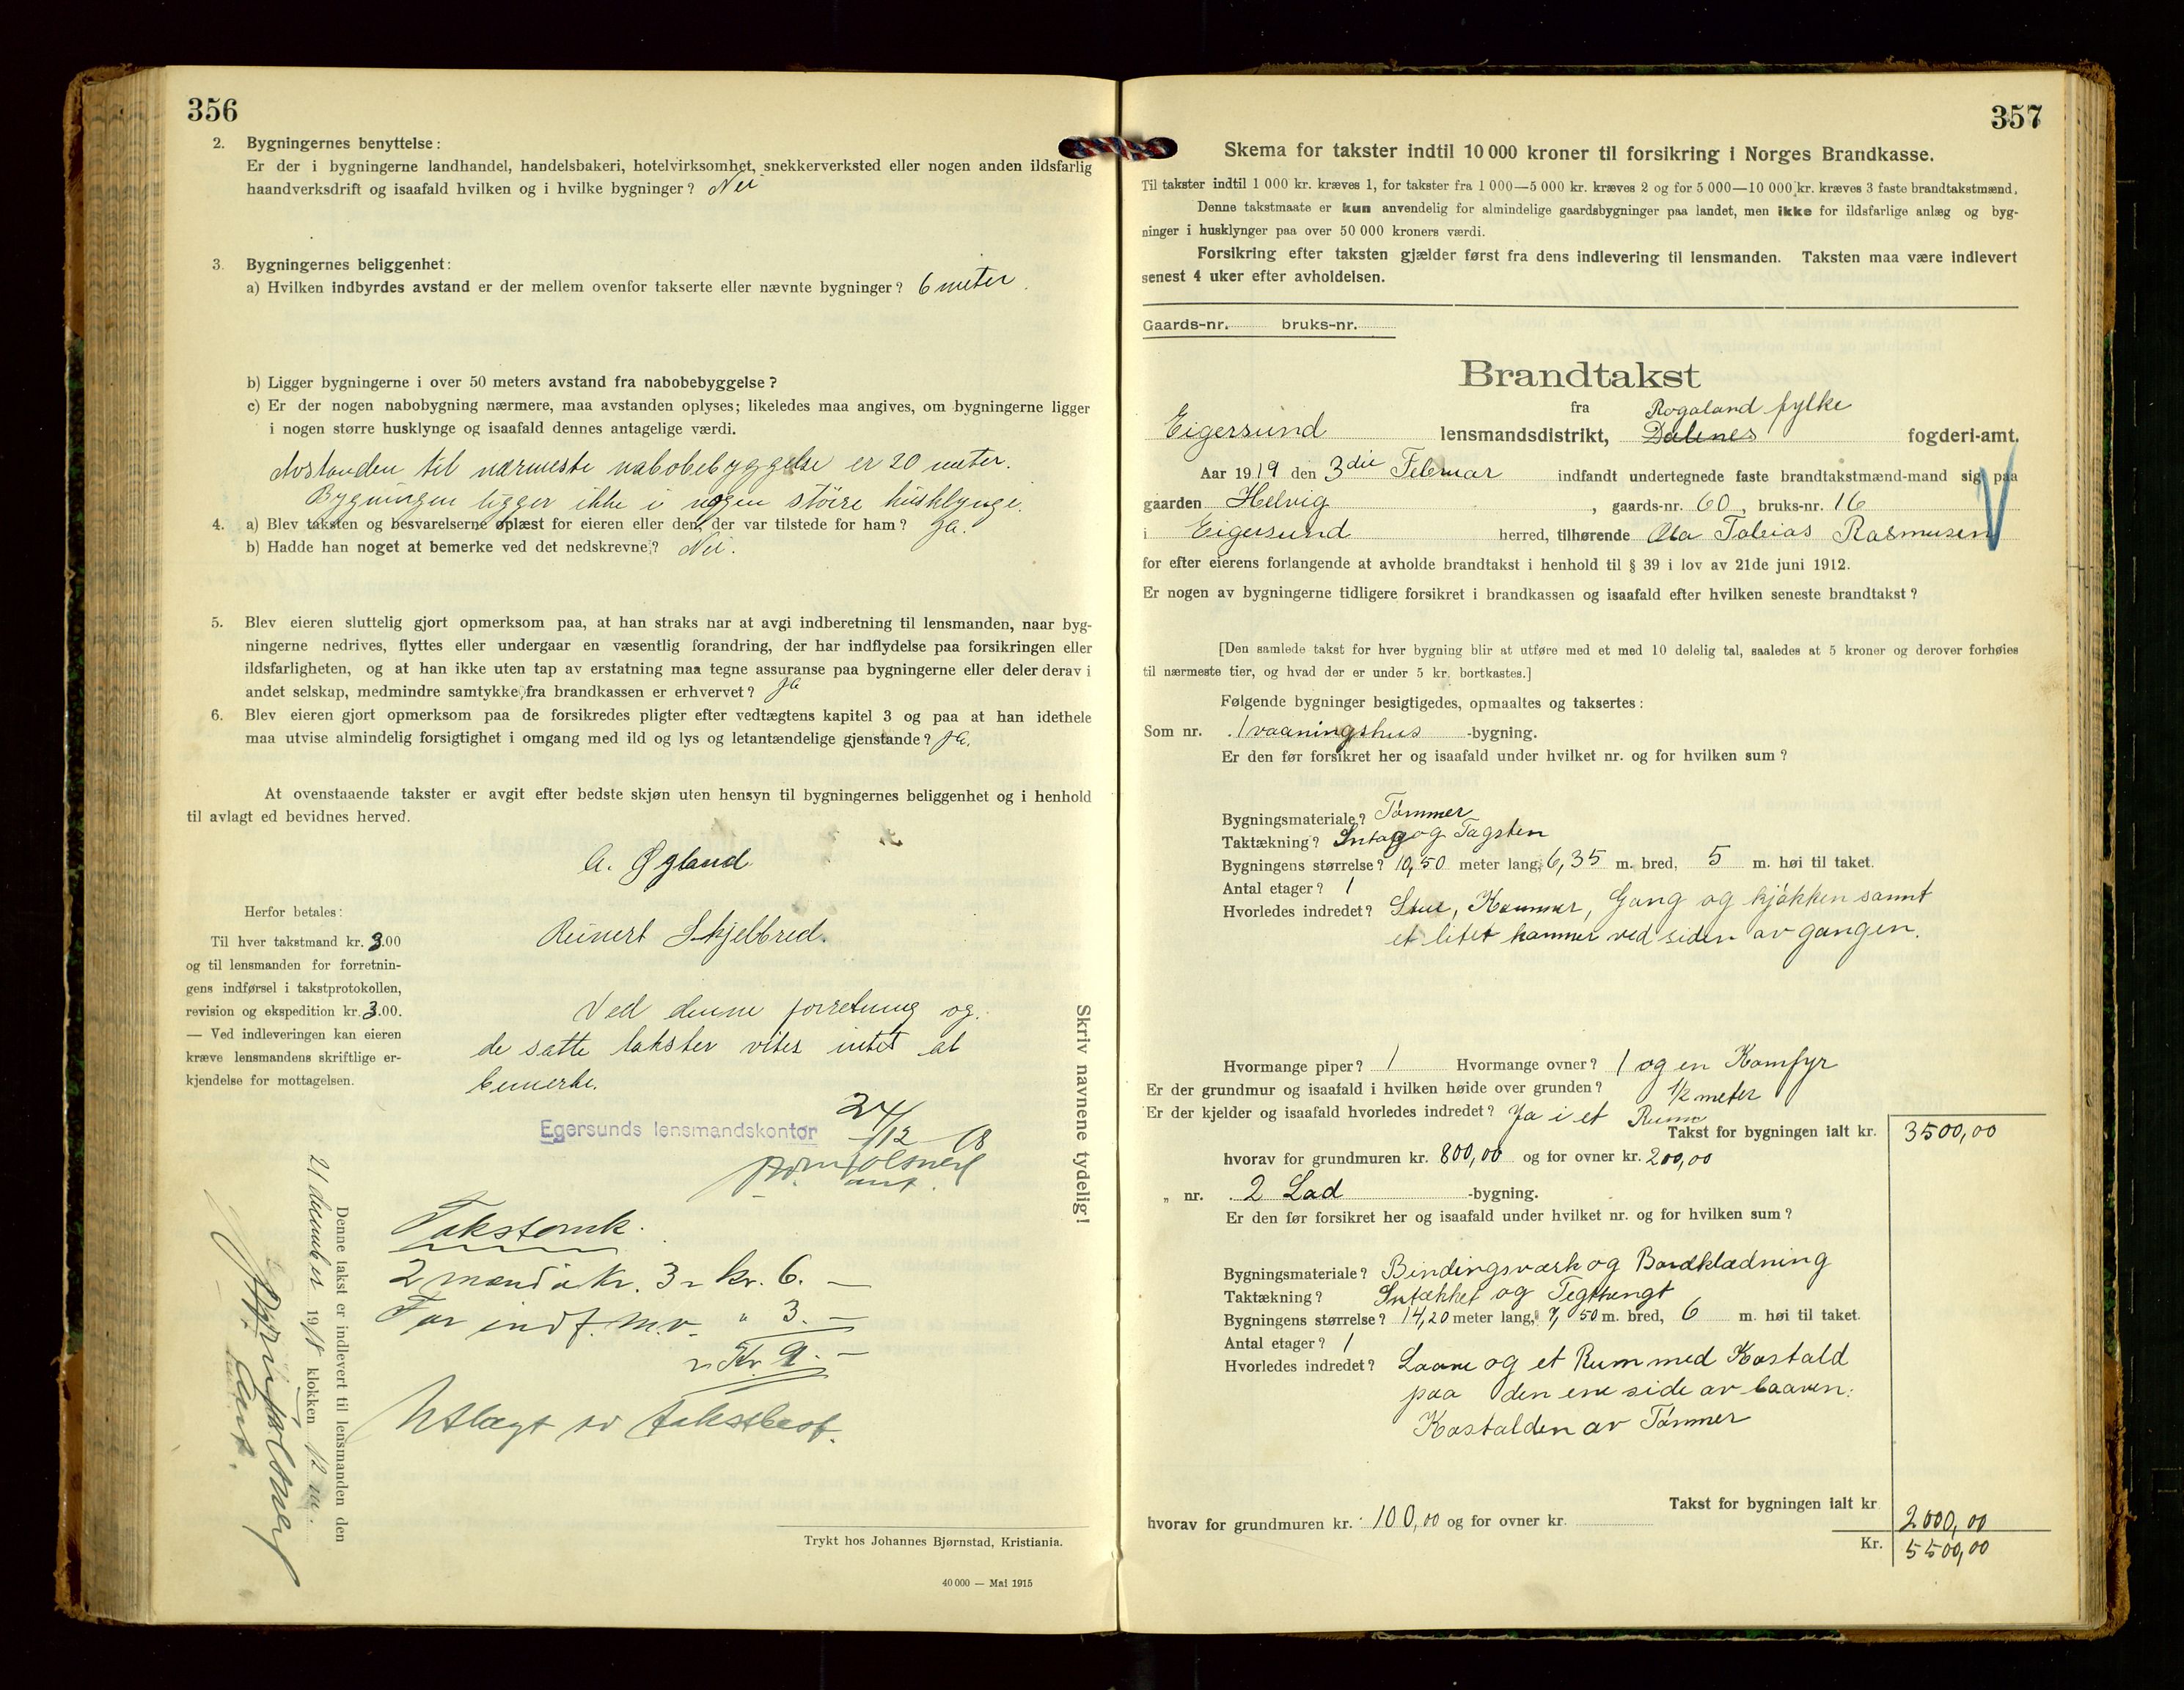 356
2. Bygningernes benyttelse:
Er der i bygningerne landhandel, handelsbakeri, hotelvirksomhet, snekkerverksted eller nogen anden ildsfarlig
haandverksdrift og isaafald hvilken og i hvilke bygninger? Nei
3. Bygningernes beliggenhet:
a) Hvilken indbyrdes avstand er der mellem ovenfor takserte eller nævnte bygninger? 6 meter.
b) Ligger bygningerne i over 50 meters avstand fra nabobebyggelse?
c) Er der nogen nabobygning nærmere, maa avstanden oplyses; likeledes maa angives, om bygningerne ligger
i nogen større husklynge og isaafald dennes antagelige værdi.
Avstanden til nærmeste nabobebyggelse er 20 meter.
Bygningen ligger ikke i nogen större husklynge.
4. a) Blev taksten og besvarelserne oplæst for eieren eller den, der var tilstede for ham? Ja.
b) Hadde han noget at bemerke ved det nedskrevne? Nei.
5. Blev eieren sluttelig gjort opmerksom paa, at han straks har at avgi indberetning til lensmanden, naar byg-
ningerne nedrives, flyttes eller undergaar en væsentlig forandring, der har indflydelse paa forsikringen eller
ildsfarligheten, og at han ikke uten tap av erstatning maa tegne assuranse paa bygningerne eller deler derav i
andet selskap, medmindre samtykke fra brandkassen er erhvervet? Ja
6. Blev eieren gjort opmerksom paa de forsikredes pligter efter vedtægtens kapitel 3 og paa at han idethele
maa utvise almindelig forsigtighet i omgang med ild og lys og letantændelige gjenstande? Ja.
At ovenstaaende takster er avgit efter bedste skjøn uten hensyn til bygningernes beliggenhet og i henhold
til avlagt ed bevidnes herved.
A. Øgland
Reinert Skjelbred.
Herfor betales:
Til hver takstmand kr. 3.00
og til lensmanden for forretnin-
gens indførsel i takstprotokollen,
revision og ekspedition kr. 3.00.
— Ved indleveringen kan eieren
kræve lensmandens skriftlige er-
kjendelse for mottagelsen.
Ved denne forretning og
de satte takster vites intet at
bemerke.
Egersunds lensmandskontor 24/12 18
Takstomk.
2 mænd a kr. 3 = kr. 6. —
For indf. m.v. " 3. —
= Kr. 9. —
Utlagt av takstbest.
Skriv navnene tydelig!
Denne takst er indlevert til lensmanden den
21 december 1918 klokken 12 m.
Trykt hos Johannes Bjørnstad, Kristiania.
40 000 — Mai 1915
357
Skema for takster indtil 10 000 kroner til forsikring i Norges Brandkasse.
Til takster indtil 1 000 kr. kræves 1, for takster fra 1 000—5 000 kr. kræves 2 og for 5 000—10 000 kr. kræves 3 faste brandtakstmænd.
Denne takstmaate er kun anvendelig for almindelige gaardsbygninger paa landet, men ikke for ildsfarlige anlæg og byg-
ninger i husklynger paa over 50 000 kroners værdi.
Forsikring efter taksten gjælder først fra dens indlevering til lensmanden. Taksten maa være indlevert
senest 4 uker efter avholdelsen.
Gaards-nr. bruks-nr.
Brandtakst
fra Rogaland fylke
Eigersund lensmandsdistrikt, Dalenes fogderi-amt.
Aar 1919 den 3die Februar indfandt undertegnede faste brandtakstmænd-mand sig paa
gaarden Helvig, gaards-nr. 60, bruks-nr. 16
i Eigersund herred, tilhørende Ola Tobias Rasmusen
for efter eierens forlangende at avholde brandtakst i henhold til § 39 i lov av 21de juni 1912.
Er nogen av bygningerne tidligere forsikret i brandkassen og isaafald efter hvilken seneste brandtakst?
[Den samlede takst for hver bygning blir at utføre med et med 10 delelig tal, saaledes at 5 kroner og derover forhøies
til nærmeste tier, og hvad der er under 5 kr. bortkastes.]
Følgende bygninger besigtigedes, opmaaltes og taksertes:
Som nr. 1 vaaningshus -bygning.
Er den før forsikret her og isaafald under hvilket nr. og for hvilken sum?
Bygningsmateriale? Tömmer
Taktækning? Sutag og Tagsten
Bygningens størrelse? 10,50 meter lang, 6,35 m. bred, 5 m. høi til taket.
Antal etager? 1
Hvorledes indredet? Stue, Kammer, Gang og kjökken samt
et litet kammer ved siden av gangen.
Hvormange piper? 1 Hvormange ovner? 1 og en Komfyr
Er der grundmur og isaafald i hvilken høide over grunden? 1/2 meter
Er der kjelder og isaafald hvorledes indredet? Ja i et Rum
Takst for bygningen ialt kr. 3500,00
hvorav for grundmuren kr. 800,00 og for ovner kr. 200,00
„ nr. 2 Lad -bygning.
Er den før forsikret her og isaafald under hvilket nr. og for hvilken sum?
Bygningsmateriale? Bindingsværk og Bordklædning
Taktækning? Sutækket og Teghengt
Bygningens størrelse? 14,20 meter lang, 7,50 m. bred, 6 m. høi til taket.
Antal etager? 1
Hvorledes indredet? Laave og et Rum med Kostald
paa den ene side av laaven.
Kostalden av Tömmer
Takst for bygningen ialt kr 2000,00
hvorav for grundmuren kr. 100,00 og for ovner kr.
Kr. 5500,00